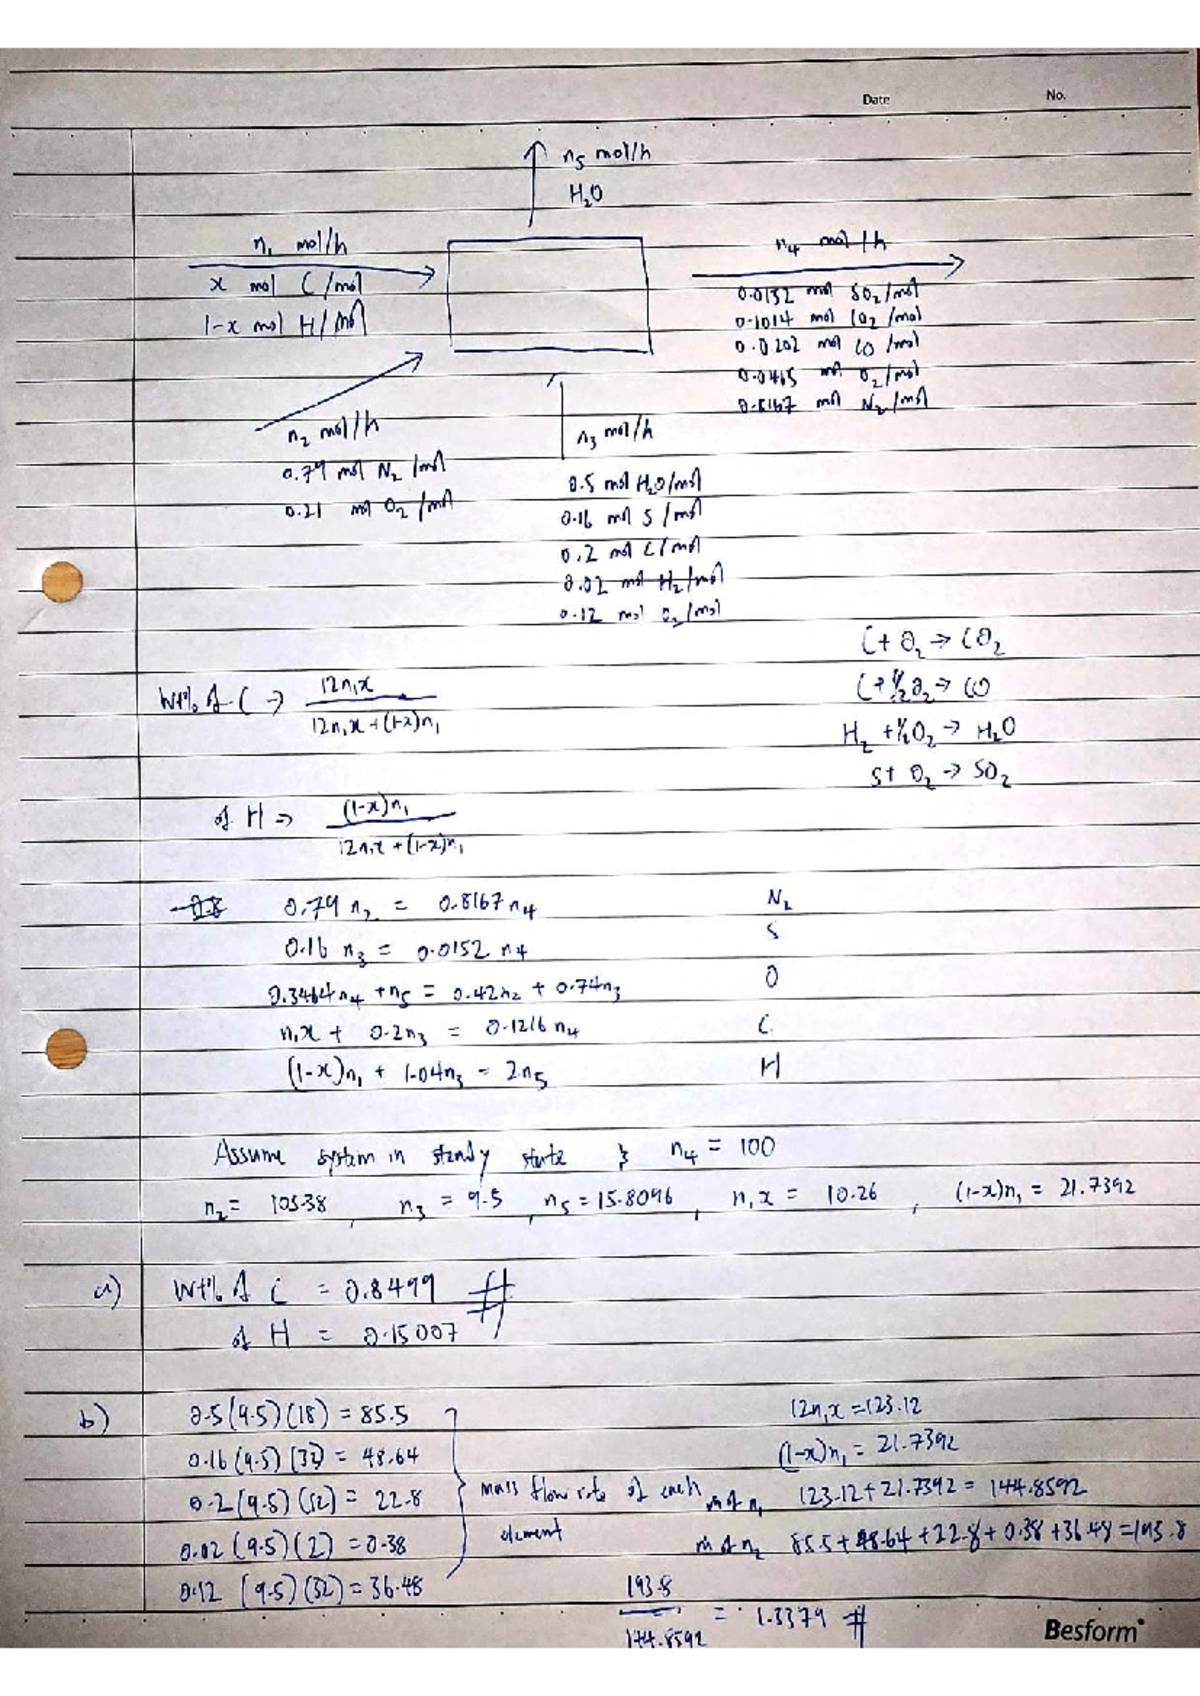 Date No.
n5 mol/h
H2O
n1 mol/h
x mol C/mol
1-x mol H/mol
n4 mol/h
0.0152 mol SO2/mol
0.1014 mol CO2/mol
0.0202 mol CO/mol
0.0465 mol O2/mol
0.8167 mol N2/mol
n2 mol/h
0.79 mol N2/mol
0.21 mol O2/mol
n3 mol/h
0.5 mol H2O/mol
0.16 mol S/mol
0.2 mol C/mol
0.02 mol H2/mol
0.12 mol O2/mol
C + O2 → CO2
C + 1/2 O2 → CO
H2 + 1/2 O2 → H2O
S + O2 → SO2
wt% of C → 12n1x / 12n1x + (1-x)n1
of H ⇒ (1-x)n1 / 12n1x + (1-x)n1
0.79 n2 = 0.8167 n4 N2
0.16 n3 = 0.0152 n4 S
0.3464n4 + n5 = 0.42n2 + 0.74n3 O
n1x + 0.2n3 = 0.1216 n4 C
(1-x)n1 + 1.04n3 = 2n5 H
Assume system in steady state & n4 = 100
n2 = 103.38, n3 = 9.5, n5 = 15.8096, n1x = 10.26, (1-x)n1 = 21.7392
a) wt% of C = 0.8499 #
of H = 0.15007
b) 0.5(9.5)(18) = 85.5
0.16(9.5)(32) = 48.64
0.2(9.5)(12) = 22.8
0.02(9.5)(2) = 0.38
0.12(9.5)(32) = 36.48
mass flow rate of each
element
12n1x = 123.12
(1-x)n1 = 21.7392
ṁ of n1 123.12 + 21.7392 = 144.8592
ṁ of n2 85.5 + 48.64 + 22.8 + 0.38 + 36.48 = 193.8
193.8 / 144.8592 = 1.3379 #
Besform